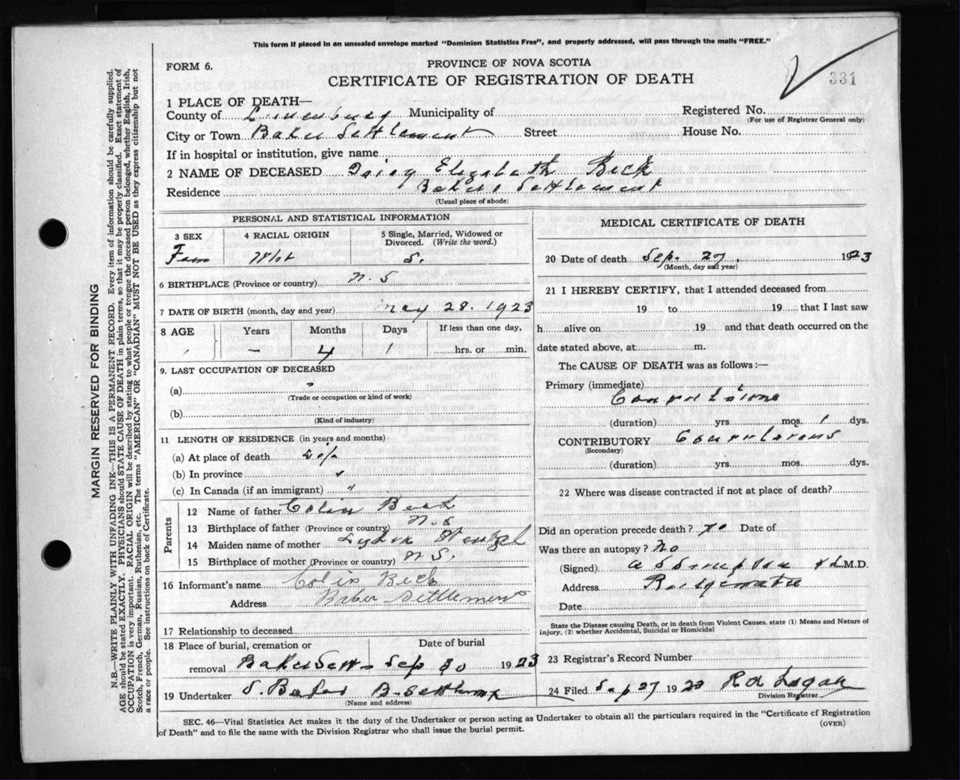 This form if placed in an unsealed envelope marked "Dominion Statistics Free", and properly addressed, will pass through the mails "FREE."
FORM 6.
PROVINCE OF NOVA SCOTIA
331
CERTIFICATE OF REGISTRATION OF DEATH
1 PLACE OF DEATH—
County of Lunenburg Municipality of
Registered No.
(For use of Registrar General only)
City or Town Baker Settlement Street House No.
If in hospital or institution, give name
2 NAME OF DECEASED Daisy Elizabeth Beck
Residence Bakers Settlement
(Usual place of abode)
PERSONAL AND STATISTICAL INFORMATION
3 SEX 4 RACIAL ORIGIN 5 Single, Married, Widowed or Divorced. (Write the word.)
Fem S.
6 BIRTHPLACE (Province or country) N.S
7 DATE OF BIRTH (month, day and year) May 28. 1923
8 AGE Years Months Days If less than one day,
— 4 1 hrs. or min.
9. LAST OCCUPATION OF DECEASED
(a)
(Trade or occupation or kind of work)
(b)
(Kind of industry)
11 LENGTH OF RESIDENCE (in years and months)
(a) At place of death
(b) In province "
(c) In Canada (if an immigrant) "
Parents
12 Name of father Colin Beck
13 Birthplace of father (Province or country) N.S
14 Maiden name of mother Lydia
15 Birthplace of mother (Province or country) N S.
16 Informant's name Colin Beck
Address Baker Settlement
17 Relationship to deceased
18 Place of burial, cremation or removal Date of burial
Baker Sett— Sep 30 1923
19 Undertaker S. Baker
(Name and address)
MEDICAL CERTIFICATE OF DEATH
20 Date of death Sep. 27, 1923
(Month, day and year)
21 I HEREBY CERTIFY, that I attended deceased from
19 to 19 that I last saw
h alive on 19 and that death occurred on the
date stated above, at m.
The CAUSE OF DEATH was as follows:—
Primary (immediate)
Convulsions
(duration) yrs mos. 1 dys.
CONTRIBUTORY
(Secondary)
(duration) yrs mos. dys.
22 Where was disease contracted if not at place of death?
Did an operation precede death? No Date of
Was there an autopsy? No
(Signed) M.D.
Address
Date
State the Disease causing Death, or in death from Violent Causes, state (1) Means and Nature of
injury, (2) whether Accidental, Suicidal or Homicidal
23 Registrar's Record Number
24 Filed Sep 27 1923 R A Logan
Division Registrar
SEC. 46—Vital Statistics Act makes it the duty of the Undertaker or person acting as Undertaker to obtain all the particulars required in the "Certificate of Registration
of Death" and to file the same with the Division Registrar who shall issue the burial permit.
(OVER)
MARGIN RESERVED FOR BINDING
N.B.—WRITE PLAINLY WITH UNFADING INK—THIS IS A PERMANENT RECORD. Every item of information should be carefully supplied.
AGE should be stated EXACTLY. PHYSICIANS should STATE CAUSE OF DEATH in plain terms, so that it may be properly classified. Exact statement of
OCCUPATION is very important. RACIAL ORIGIN will be described by stating to what people or tongue the deceased person belonged, whether English, Irish,
Scotch, French, German, Russian, Ruthenian, etc. The terms "AMERICAN" OR "CANADIAN" MUST NOT BE USED as they express citizenship but not
a race or people. See instructions on back of Certificate.